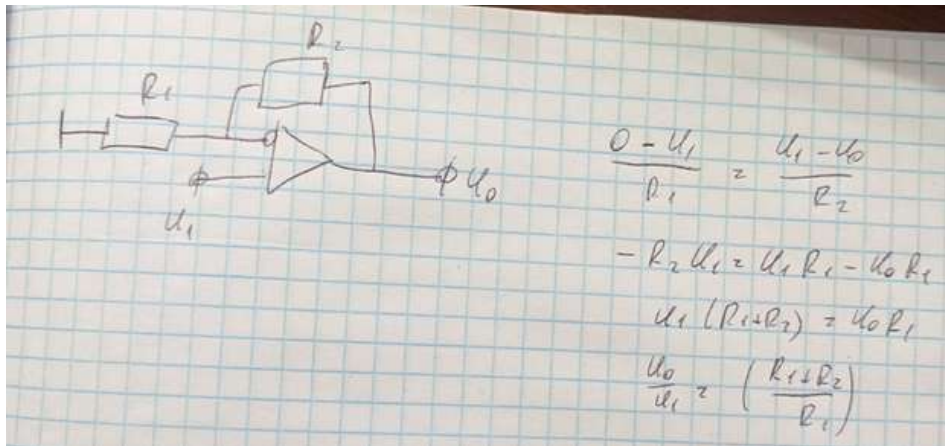 R2
R1
U1
U0
(0 - U1) / R1 = (U1 - U0) / R2
- R2 U1 = U1 R1 - U0 R1
U1 (R1+R2) = U0 R1
U0 / U1 = ( (R1+R2) / R1 )